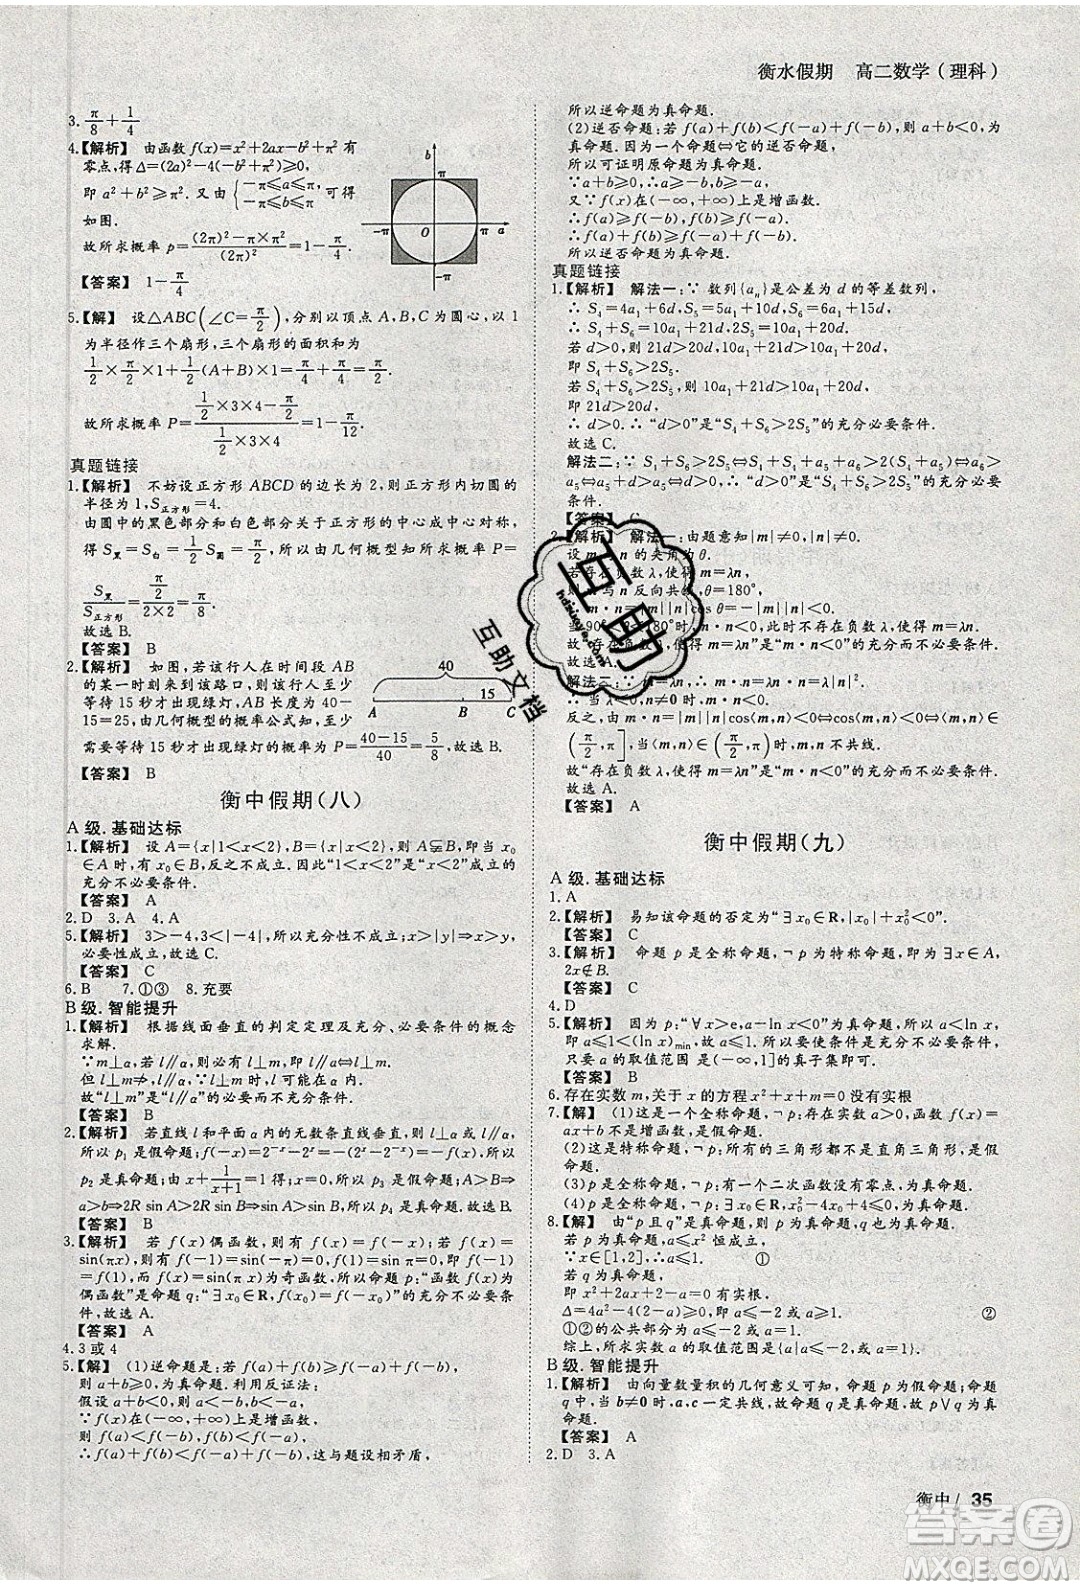 衡水假期 高二数学(理科)
3. π/8+1/4
4.【解析】 由函数 f(x)=x²+2ax-b²+π² 有
零点,得 Δ=(2a)²-4(-b²+π²)≥0,
即 a²+b²≥π². 又由 {-π≤a≤π, -π≤b≤π, 可得
如图.
故所求概率 p=((2π)²-π×π²)/(2π)²=1-π/4.
【答案】 1-π/4
b
π
-π O π a
-π
5.【解】 设△ABC(∠C=π/2),分别以顶点 A,B,C 为圆心,以 1
为半径作三个扇形,三个扇形的面积和为
1/2×π/2×1+1/2×(A+B)×1=1/2×π/2+1/2×π/2=π/2.
故所求概率 P=(1/2×3×4-π/2)/(1/2×3×4)=1-π/12.
真题链接
1.【解析】 不妨设正方形 ABCD 的边长为 2,则正方形内切圆的
半径为 1,S正方形=4.
由圆中的黑色部分和白色部分关于正方形的中心成中心对称,
得 S黑=S白=1/2 S圆=π/2,所以由几何概型知所求概率 P=
S黑/S正方形=(π/2)/(2×2)=π/8.
故选 B.
【答案】 B
2.【解析】 如图,若该行人在时间段 AB
的某一时刻来到该路口,则该行人至少
等待 15 秒才出现绿灯,AB 长度为 40-
15=25,由几何概型的概率公式知,至少
需要等待 15 秒才出现绿灯的概率为 (40-15)/40=5/8,故选 B.
【答案】 B
40
15
A B C
衡中假期(八)
A 级. 基础达标
1.【解析】 设 A={x|1<x<2},B={x|x<2},因为 A⫋B,故当 x₀
∈A 时,有 x₀∈B,反之不成立. 因此“1<x<2”是“x<2”成立的
充分不必要条件.
【答案】 A
2. D 3. A 4. A
5.【解析】 3>-4,3<|-4|,所以充分性不成立;x>|y|⇒x>y,
必要性成立,故选 C.
【答案】 C
6. B 7. ①③ 8. 充要
B 级. 智能提升
1.【解析】 根据线面垂直的判定定理及充分、必要条件的概念
求解.
∵m⊥α,若 l∥α,则必有 l⊥m,即 l∥α⇒l⊥m.
但 l⊥m⇏l∥α,∵l⊥m 时,l 可能在 α 内.
故“l⊥m”是“l∥α”的必要不充分条件.
【答案】 B
2.【解析】 若直线 l 和平面 α 内的无数条直线垂直,则 l⊥α 或 l∥α,
所以 p₁ 是假命题;f(-x)=2⁻ˣ-2ˣ=-(2ˣ-2⁻ˣ)=-f(x),所以
p₂ 是真命题;由 x+1/(x+1)=1 得:x=0,所以 p₃ 是假命题;A>B⇒
a>b⇒2R sin A>2R sin B⇒sin A>sin B,所以 p₄ 是真命题. 故选 B.
【答案】 B
3.【解析】 若 f(x)偶函数,则有 f(-x)=f(x). 若 f(x)=
sin(πx),则有 f(-1)=f(1)=sin π=0,但此时 f(x)=
sin(πx)为奇函数,所以命题 p:“f(x)
偶函数”是命题 q:“∃x₀∈R,f(x₀)=f(-x₀)”的充分不必要条件,
故选 A.
【答案】 A
4. 3 或 4
5.【解】 (1)逆命题是:若 f(a)+f(b)≥f(-a)+f(-b),
则 a+b≥0,为真命题. 利用反证法:
假设 a+b<0,则 a<-b,b<-a.
∵f(x)在(-∞,+∞)上是增函数,
则 f(a)<f(-b),f(b)<f(-a).
∴f(a)+f(b)<f(-a)+f(-b),这与题设相矛盾,
所以逆命题为真命题.
(2)逆否命题:若 f(a)+f(b)<f(-a)+f(-b),则 a+b<0,为真
命题. 因为一个命题⇔它的逆否命题,
所以可证明原命题为真命题.
∵a+b≥0,∴a≥-b,b≥-a.
又∵f(x)在(-∞,+∞)上是增函数,
∴f(a)≥f(-b),f(b)≥f(-a).
∴f(a)+f(b)≥f(-a)+f(-b).
所以逆否命题为真命题.
真题链接
1.【解析】 解法一:∵数列{aₙ}是公差为 d 的等差数列,
∴S₄=4a₁+6d,S₅=5a₁+10d,S₆=6a₁+15d,
∴S₄+S₆=10a₁+21d,2S₅=10a₁+20d.
若 d>0,则 21d>20d,10a₁+21d>10a₁+20d,
即 S₄+S₆>2S₅.
若 S₄+S₆>2S₅,则 10a₁+21d>10a₁+20d,
即 21d>20d,
∴d>0. ∴“d>0”是“S₄+S₆>2S₅”的充分必要条件.
故选 C.
解法二:∵S₄+S₆>2S₅⇔S₄+S₄+a₅+a₆>2(S₄+a₅)⇔a₆>
a₅⇔a₅+d>a₅⇔d>0,∴“d>0”是“S₄+S₆>2S₅”的充分必要
条件.
【答案】 C
2.【解析】 解法一:由题意知|m|≠0,|n|≠0.
设 m 与 n 的夹角为θ.
若存在负数λ,使得 m=λn,
则 m 与 n 反向共线,θ=180°,
∴m·n=|m||n|cos θ=-|m||n|<0.
当 90°<θ<180°时,m·n<0,此时不存在负数λ,使得 m=λn.
故“存在负数λ,使得 m=λn”是“m·n<0”的充分而不必要条件.
故选 A.
解法二:∵m=λn,∴m·n=λn·n=λ|n|².
∴当λ<0,n≠0 时,m·n<0.
反之,由 m·n=|m||n|cos⟨m,n⟩<0⇔cos⟨m,n⟩<0⇔⟨m,n⟩∈
(π/2,π],当⟨m,n⟩∈(π/2,π)时,m,n 不共线.
故“存在负数λ,使得 m=λn”是“m·n<0”的充分而不必要条件.
故选 A.
【答案】 A
衡中假期(九)
A 级. 基础达标
1. A
2.【解析】 易知该命题的否定为“∃x₀∈R,|x₀|+x₀²<0”.
【答案】 C
3.【解析】 命题 p 是全称命题,¬p 是特称命题,即为∃x∈A,
2x∉B.
【答案】 C
4. D
5.【解析】 因为 p:“∀x>e,a-ln x<0”为真命题,所以 a<ln x,
所以 a≤(ln x)min,故 a≤1. 所以要使条件是充分不必要条
件,只需 a 的取值范围 是(-∞,1]的真子集即可.
【答案】 B
6. 存在实数 m,关于 x 的方程 x²+x+m=0 没有实根
7.【解】 (1)这是一个全称命题,¬p:存在实数 a≥0,函数 f(x)=
ax+b 不是增函数,是假命题.
(2)这是特称命题,¬p:所有的三角形都不是直角三角形,是假
命题.
(3)p 是全称命题,¬p:有一个二次函数没有零点,为真命题.
(4)p 是特称命题,¬p:∃x₀∈R,x₀²-4x₀+4≤0,为真命题.
8.【解】 由“p 且 q”是真命题,知 p 为真命题,q 也为真命题.
若 p 为真命题,则 a≤x² 恒成立.
∵x∈[1,2],∴a≤1. ①
若 q 为真命题,
即 x²+2ax+2-a=0 有实根.
Δ=4a²-4(2-a)≥0,即 a≤-2 或 a≥1. ②
①②的公共部分为 a≤-2 或 a=1.
综上,所求实数 a 的取值范围为 a≤-2 或 a=1.
B 级. 智能提升
1.【解析】 由向量数量积的几何意义可知,命题 p 为假命题;命题
q 中,当 b≠0 时,a,c 一定共线,故命题 q 是真命题. 故 p∨q 为真
命题.
【答案】 A
2. D 3. A
衡中 / 35
互助
互助文档
答案圈
MXQE.COM